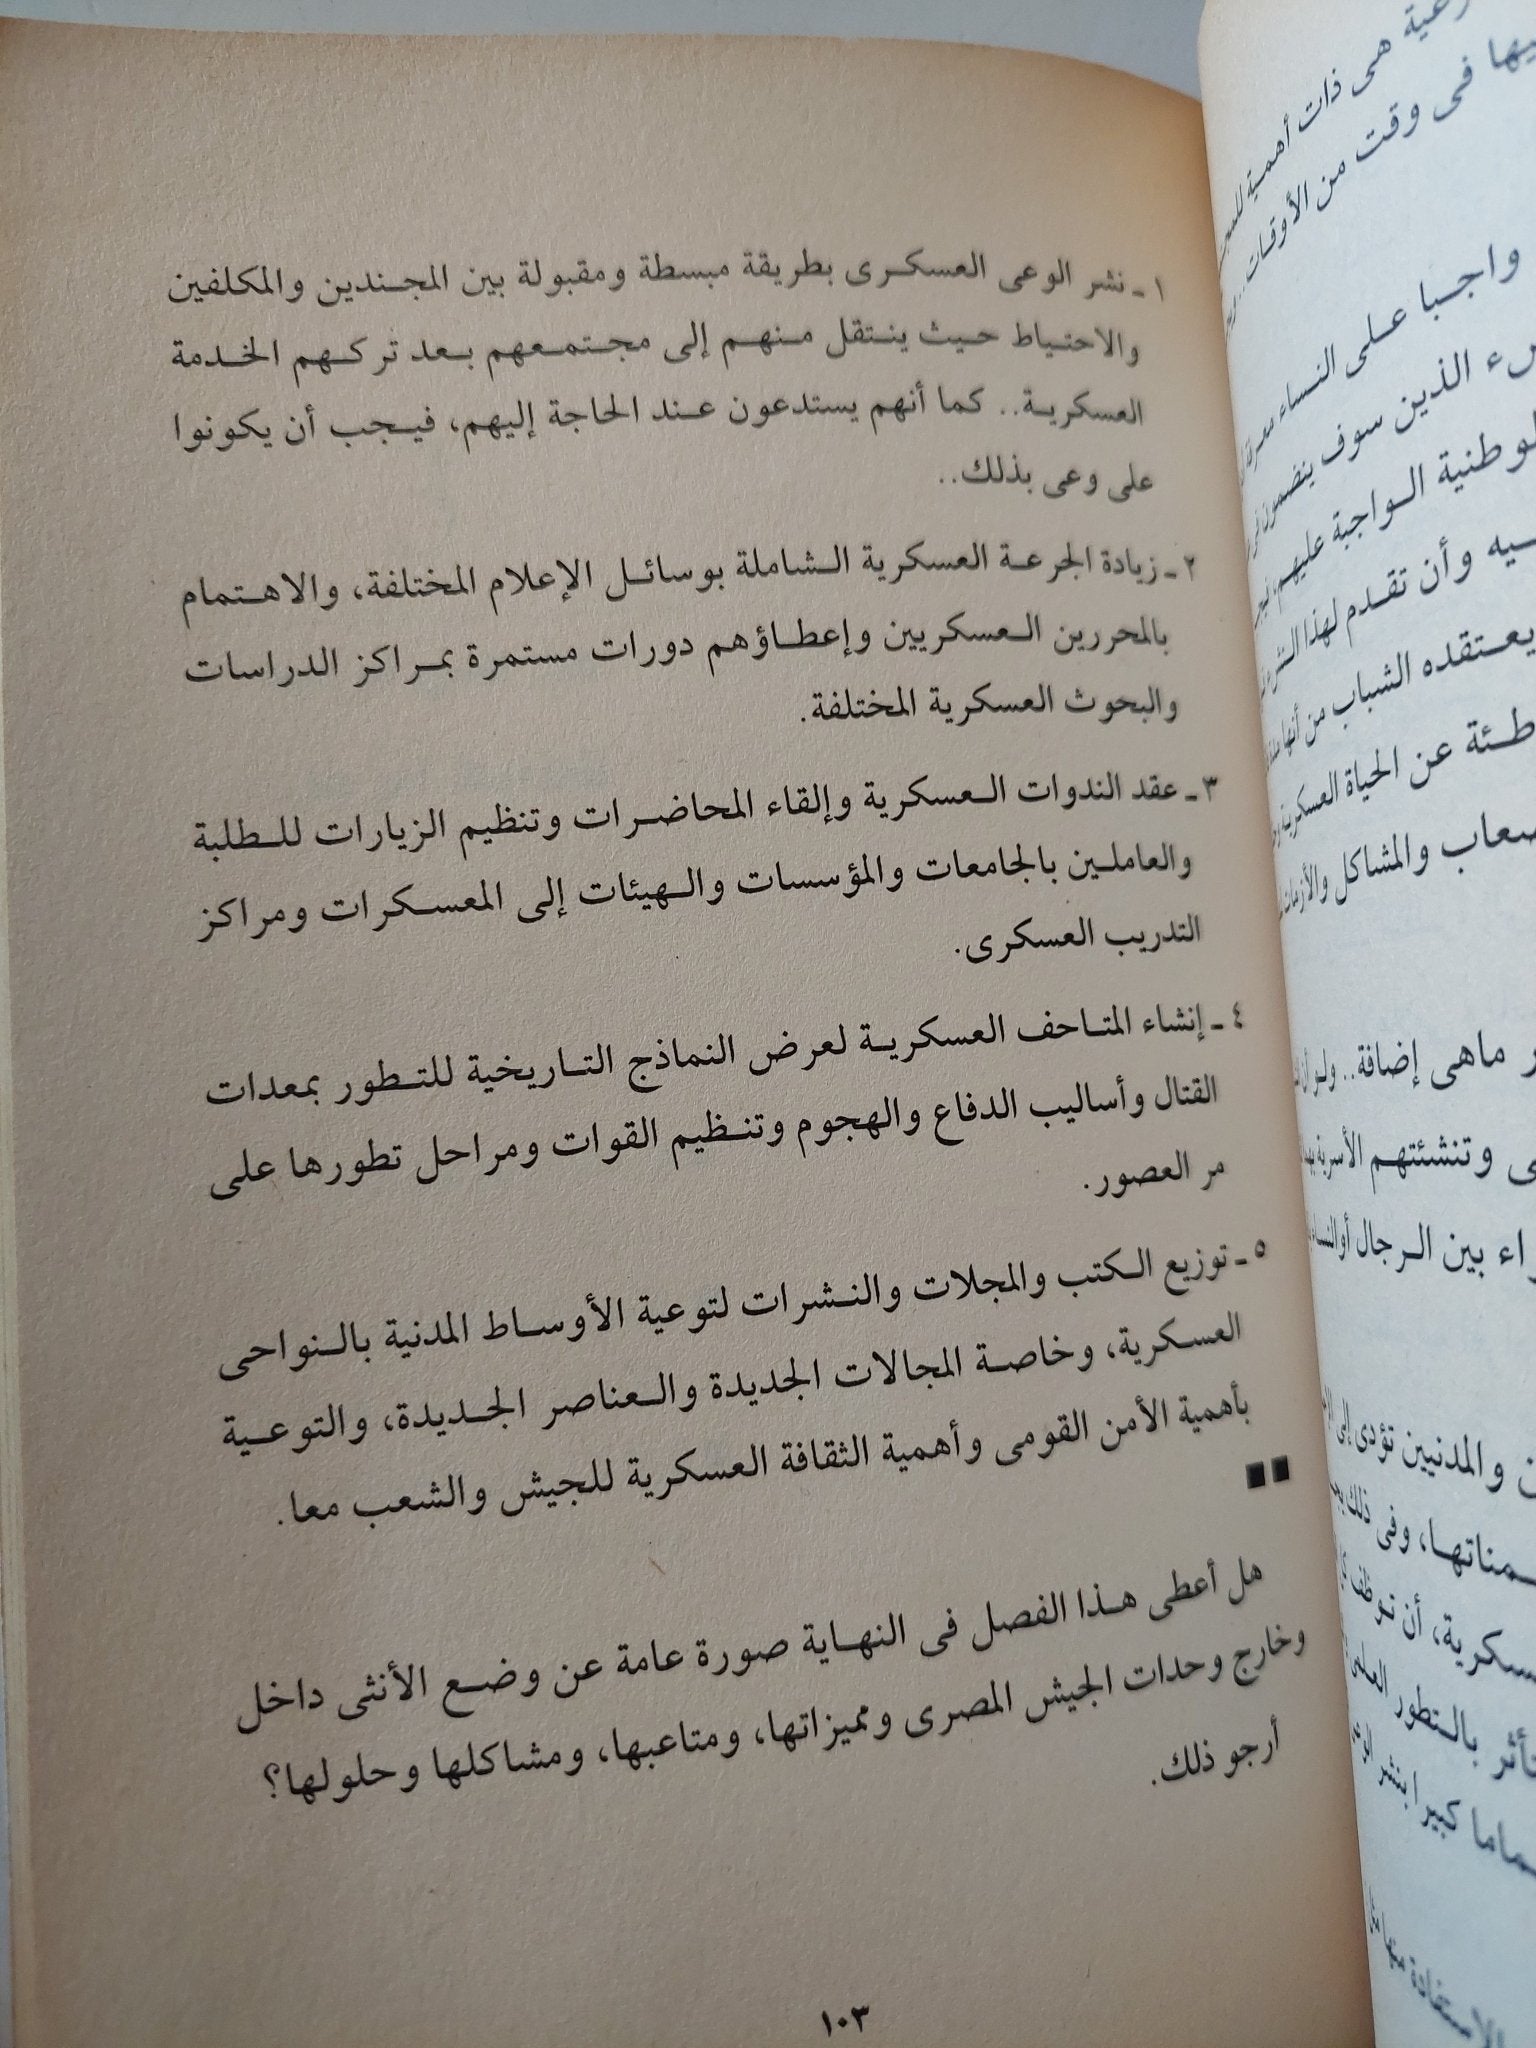 ١ ـ نشر الوعى العسكرى بطريقة مبسطة ومقبولة بين المجندين والمكلفين
والاحتياط حيث ينتقل منهم إلى مجتمعهم بعد تركهم الخدمة
العسكرية.. كما أنهم يستدعون عند الحاجة إليهم، فيجب أن يكونوا
على وعى بذلك..
٢ ـ زيادة الجرعة العسكرية الشاملة بوسائل الإعلام المختلفة، والاهتمام
بالمحررين العسكريين وإعطاؤهم دورات مستمرة بمراكز الدراسات
والبحوث العسكرية المختلفة.
٣ ـ عقد الندوات العسكرية وإلقاء المحاضرات وتنظيم الزيارات للطلبة
والعاملين بالجامعات والمؤسسات والهيئات إلى المعسكرات ومراكز
التدريب العسكرى.
٤ ـ إنشاء المتاحف العسكرية لعرض النماذج التاريخية للتطور بمعدات
القتال وأساليب الدفاع والهجوم وتنظيم القوات ومراحل تطورها على
مر العصور.
٥ ـ توزيع الكتب والمجلات والنشرات لتوعية الأوساط المدنية بالنواحى
العسكرية، وخاصة المجالات الجديدة والعناصر الجديدة، والتوعية
بأهمية الأمن القومى وأهمية الثقافة العسكرية للجيش والشعب معا.
هل أعطى هذا الفصل فى النهاية صورة عامة عن وضع الأنثى داخل
وخارج وحدات الجيش المصرى ومميزاتها، ومتاعبها، ومشاكلها وحلولها؟
أرجو ذلك.
١٠٣
هى ذات أهمية
فى وقت من الأوقات..
واجبا على النساء
الذين سوف ينضمون
الواجبة عليهم،
وأن تقدم لهذا
يعتقده الشباب من أنها
عن الحياة العسكرية
والمشاكل والأزمات
ماهى إضافة..
وتنشئتهم الأسرية
بين الرجال أو النساء
والمدنيين تؤدى إلى
وفى ذلك
أن توظف
بالتطور
كبيرا بنشر